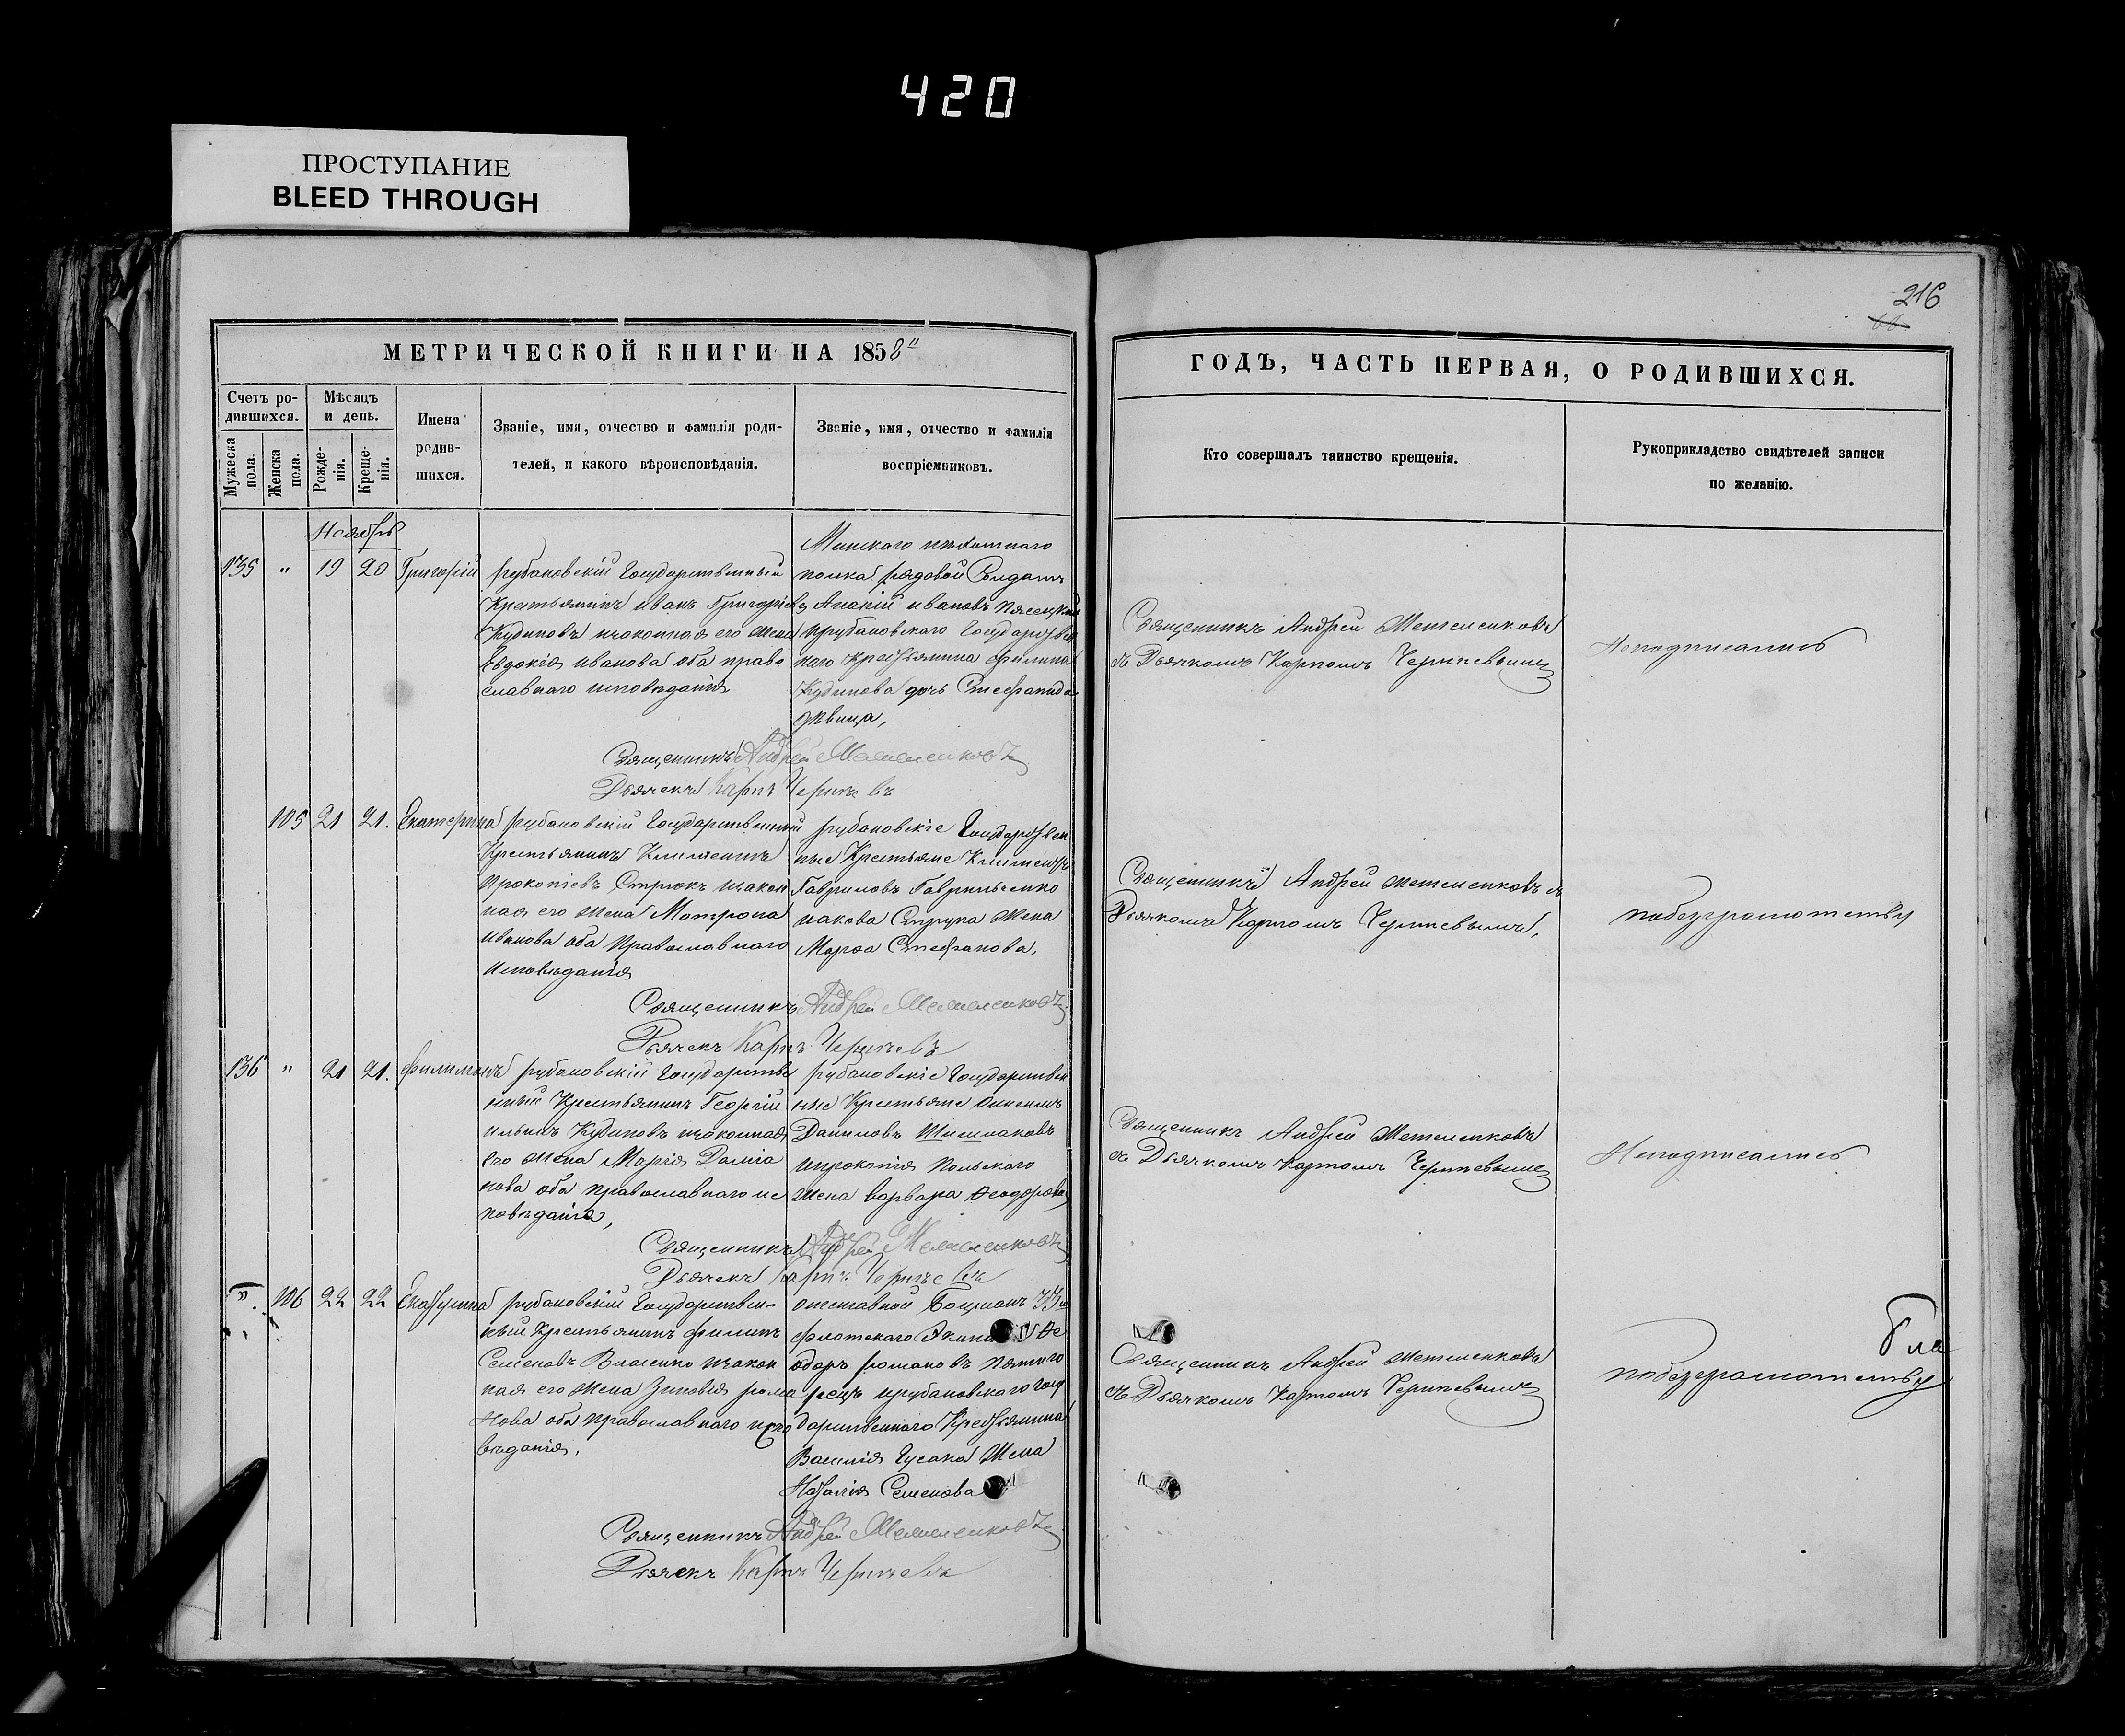 420
ПРОСТУПАНИЕ
BLEED THROUGH
216
МЕТРИЧЕСКОЙ КНИГИ НА 1858
ГОДЪ, ЧАСТЬ ПЕРВАЯ, О РОДИВШИХСЯ.
Счетъ ро-
дившихся.
Мѣсяцъ
и день.
Мужеска
пола.
Женска
пола.
Рожде-
нія.
Креще-
нія.
Имена
родив-
шихся.
Званіе, имя, отчество и фамилія роди-
телей, и какого вѣроисповѣданія.
Званіе, имя, отчество и фамилія
воспріемниковъ.
Кто совершалъ таинство крещенія.
Рукоприкладство свидѣтелей записи
по желанію.
Ноябрь
135 " 19 20 Григорій
рубановскій Государственный
Крестьянинъ иванъ Григоріевъ
Кудиновъ изаконная его жена
Евдокія иванова оба право
славнаго исповѣданія
Минского пѣхотнаго
полка рядовой Солдатъ
Ананій ивановъ
ирубановскаго Государствен
наго крестьянина филипа
Кудинова дочь Стефанида
дѣвица,
Священникъ Андрей Метеленковъ
съ Дьячкомъ Карпомъ
Неподписались
Священникъ Андрей Метеленковъ
Дьячекъ Карпъ
105 21 21. Екатерина
рубановскій Государственный
Крестьянинъ Климентъ
Прокопіевъ Стрюкъ изакон
ная его жена Матрона
иванова оба Православнаго
Исповѣданія
рубановскіе Государствен
ные Крестьяне Климентъ
Гавриловъ Гавриленко
иакова жена
Марфа Стефанова,
Священникъ Андрей Метеленковъ съ
Дьячкомъ Карпомъ
побезграмотству
Священникъ Андрей Метеленковъ
Дьячекъ Карпъ
136 " 21 21. Филимонъ
рубановскій Государстве
нный Крестьянинъ Георгій
ильинъ Кудиновъ изаконная
его жена Марія Даміа
нова оба православнаго ис
повѣданія,
рубановскіе Государствен
ные Крестьяне
Даниловъ Шишлаковъ
ипрокопія Польскаго
жена варвара Феодорова
Священникъ Андрей Метеленковъ
съ Дьячкомъ Карпомъ
Неподписались
Священникъ Андрей Метеленковъ
Дьячекъ Карпъ
" 106 22 22 Екатерина
рубановскій Государствен-
ный Крестьянинъ филипъ
Семеновъ Власенко изакон
ная его жена Зиновія рома
нова оба Православнаго испо
вѣданія,
отставной Боцманъ 33го
флотскаго Экипа Фе
одоръ романовъ
рецъ ирубановскаго Госу
дарственнаго Крестьянина
Василія Гусака жена
Наталія Семенова
Священникъ Андрей Метеленковъ
съ Дьячкомъ Карпомъ
побезграмотству
Священникъ Андрей Метеленковъ
Дьячекъ Карпъ